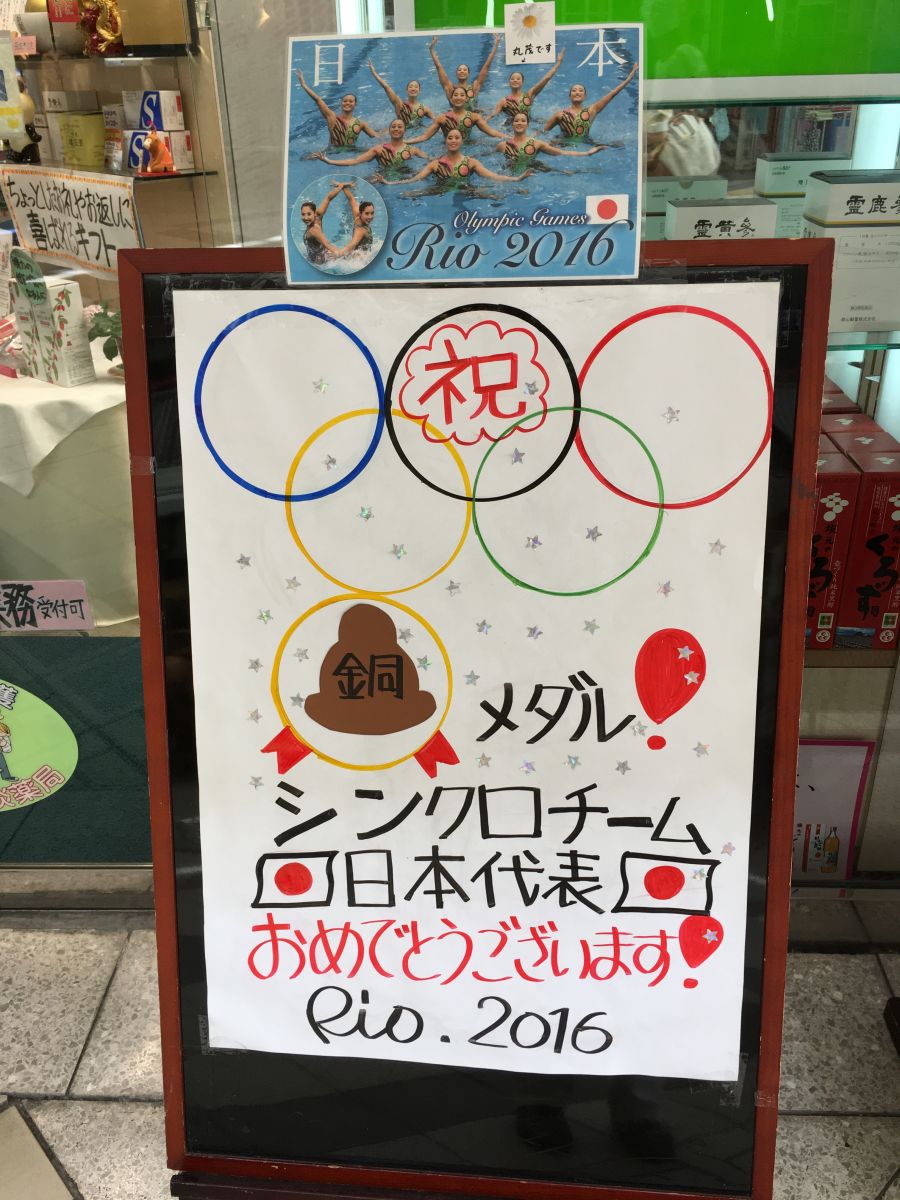 丸茂です
日本
Olympic Games
Rio 2016
祝
銅
メダル!
シンクロチーム
日本代表
おめでとうございます!
Rio. 2016
ちょっとしたお礼やお返しに
喜ばれるギフト
務受付可
薬局
霊黄参
霊鹿参
くろず
S
S